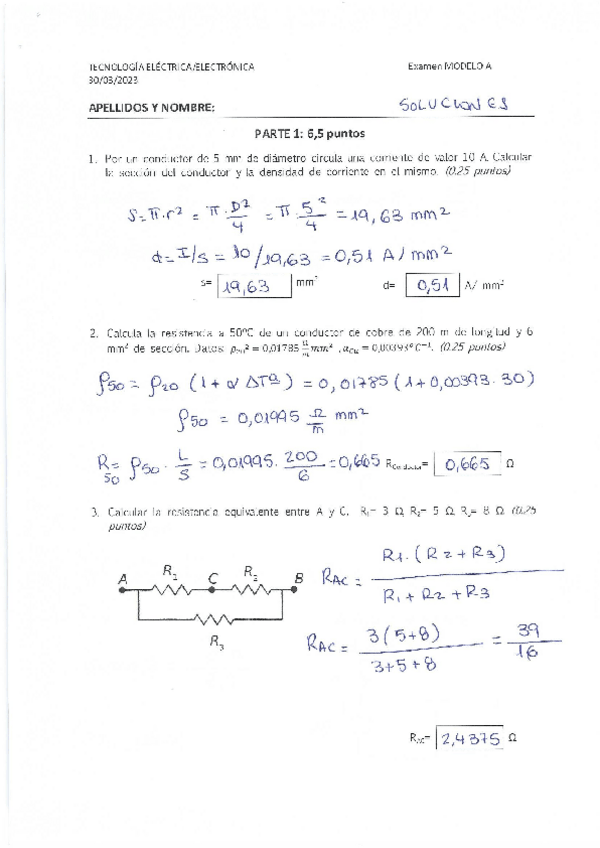 TECNOLOGÍA ELÉCTRICA/ELECTRÓNICA Examen MODELO A
30/03/2023
APELLIDOS Y NOMBRE: SOLUCIONES
PARTE 1: 6,5 puntos
1. Por un conductor de 5 mm de diámetro circula una corriente de valor 10 A. Calcular
la sección del conductor y la densidad de corriente en el mismo. (0.25 puntos)
S = π·r² = π·D²/4 = π·5²/4 = 19,63 mm²
d = I/s = 10/19,63 = 0,51 A/mm²
s= 19,63 mm² d= 0,51 A/ mm²
2. Calcula la resistencia a 50ºC de un conductor de cobre de 200 m de longitud y 6
mm² de sección. Datos: ρ20º = 0,01785 Ω/m mm² , αCu = 0,00393ºC⁻¹. (0.25 puntos)
ρ50 = ρ20 (1 + α ΔTª) = 0,01785 (1+0,00393·30)
ρ50 = 0,01995 Ω/m mm²
R50 = ρ50 · L/S = 0,01995 · 200/6 = 0,665 RConductor= 0,665 Ω
3. Calcular la resistencia equivalente entre A y C. R1= 3 Ω, R2= 5 Ω, R3= 8 Ω. (0.25
puntos)
A R1 C R2 B
R3
RAC = R1·(R2+R3) / R1+R2+R3
RAC = 3(5+8) / 3+5+8 = 39/16
RAC= 2,4375 Ω